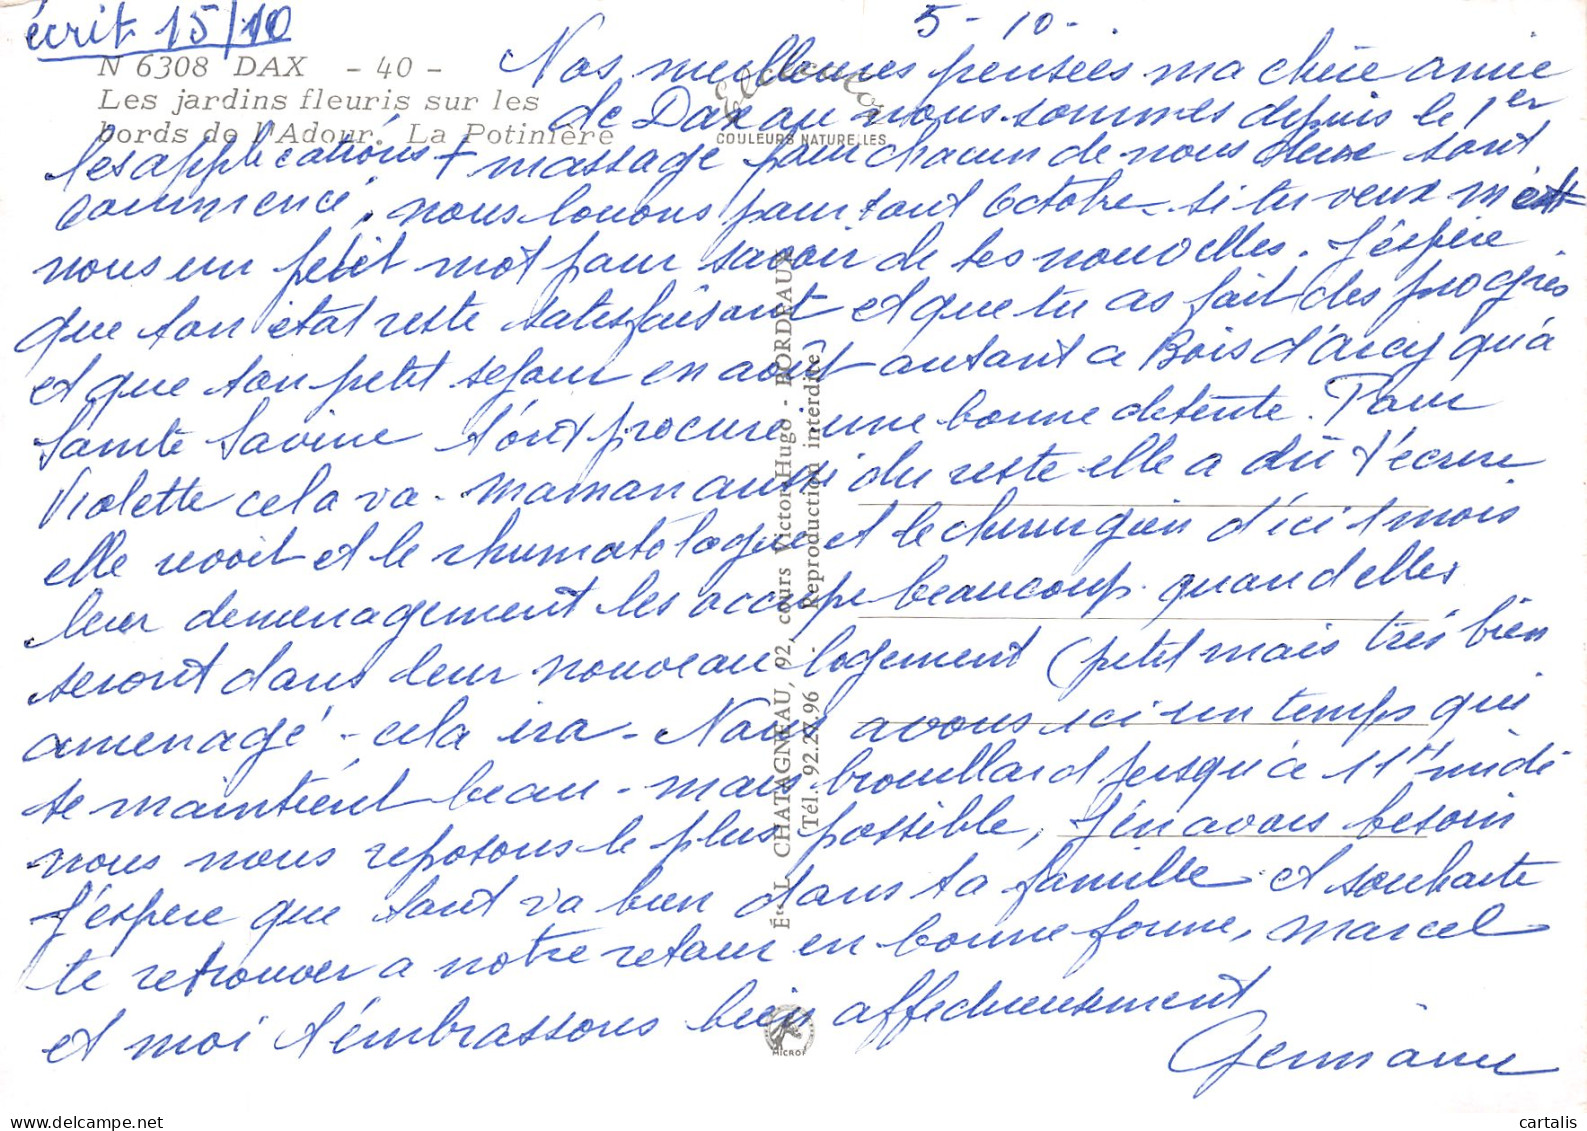 écrit 15/10
5 - 10 -
N 6308 DAX - 40 -
Les jardins fleuris sur les
bords de l'Adour. La Potinière
COULEURS NATURELLES
Nos meilleures pensées ma chère amie
de Dax où nous sommes depuis le 1er
les applications + massage pour chacun de nous deux sont
commencé, nous louons pour tout Octobre - si tu veux met
nous un petit mot pour savoir de tes nouvelles. J'espère
que ton état reste satisfaisant et que tu as fait des progrès
et que ton petit séjour en août autant a Bois d'arcy qu'à
Sainte Savine t'ont procuré une bonne détente. Pour
Violette cela va - maman aussi du reste elle a dû t'écrire
elle revoit et le rhumatologue et le chirurgien d'ici 1 mois
leur demenagement les occupe beaucoup. quand elles
seront dans leur nouveau logement (petit mais très bien
amenagé - cela ira - Nous avons ici un temps qui
se maintient beau - mais brouillard jusqu'à 11H midi
nous nous reposons le plus possible, j'en avais besoin
J'espère que tout va bien dans ta famille et souhaite
te retrouver a notre retour en bonne forme, Marcel
et moi t'embrassons bien affectueusement
Germaine
Éd. L. CHATAGNEAU, 92, cours Victor-Hugo - BORDEAUX
(Tél. 92.27.96 - Reproduction interdite)
MICROF
delcampe.net
cartalis